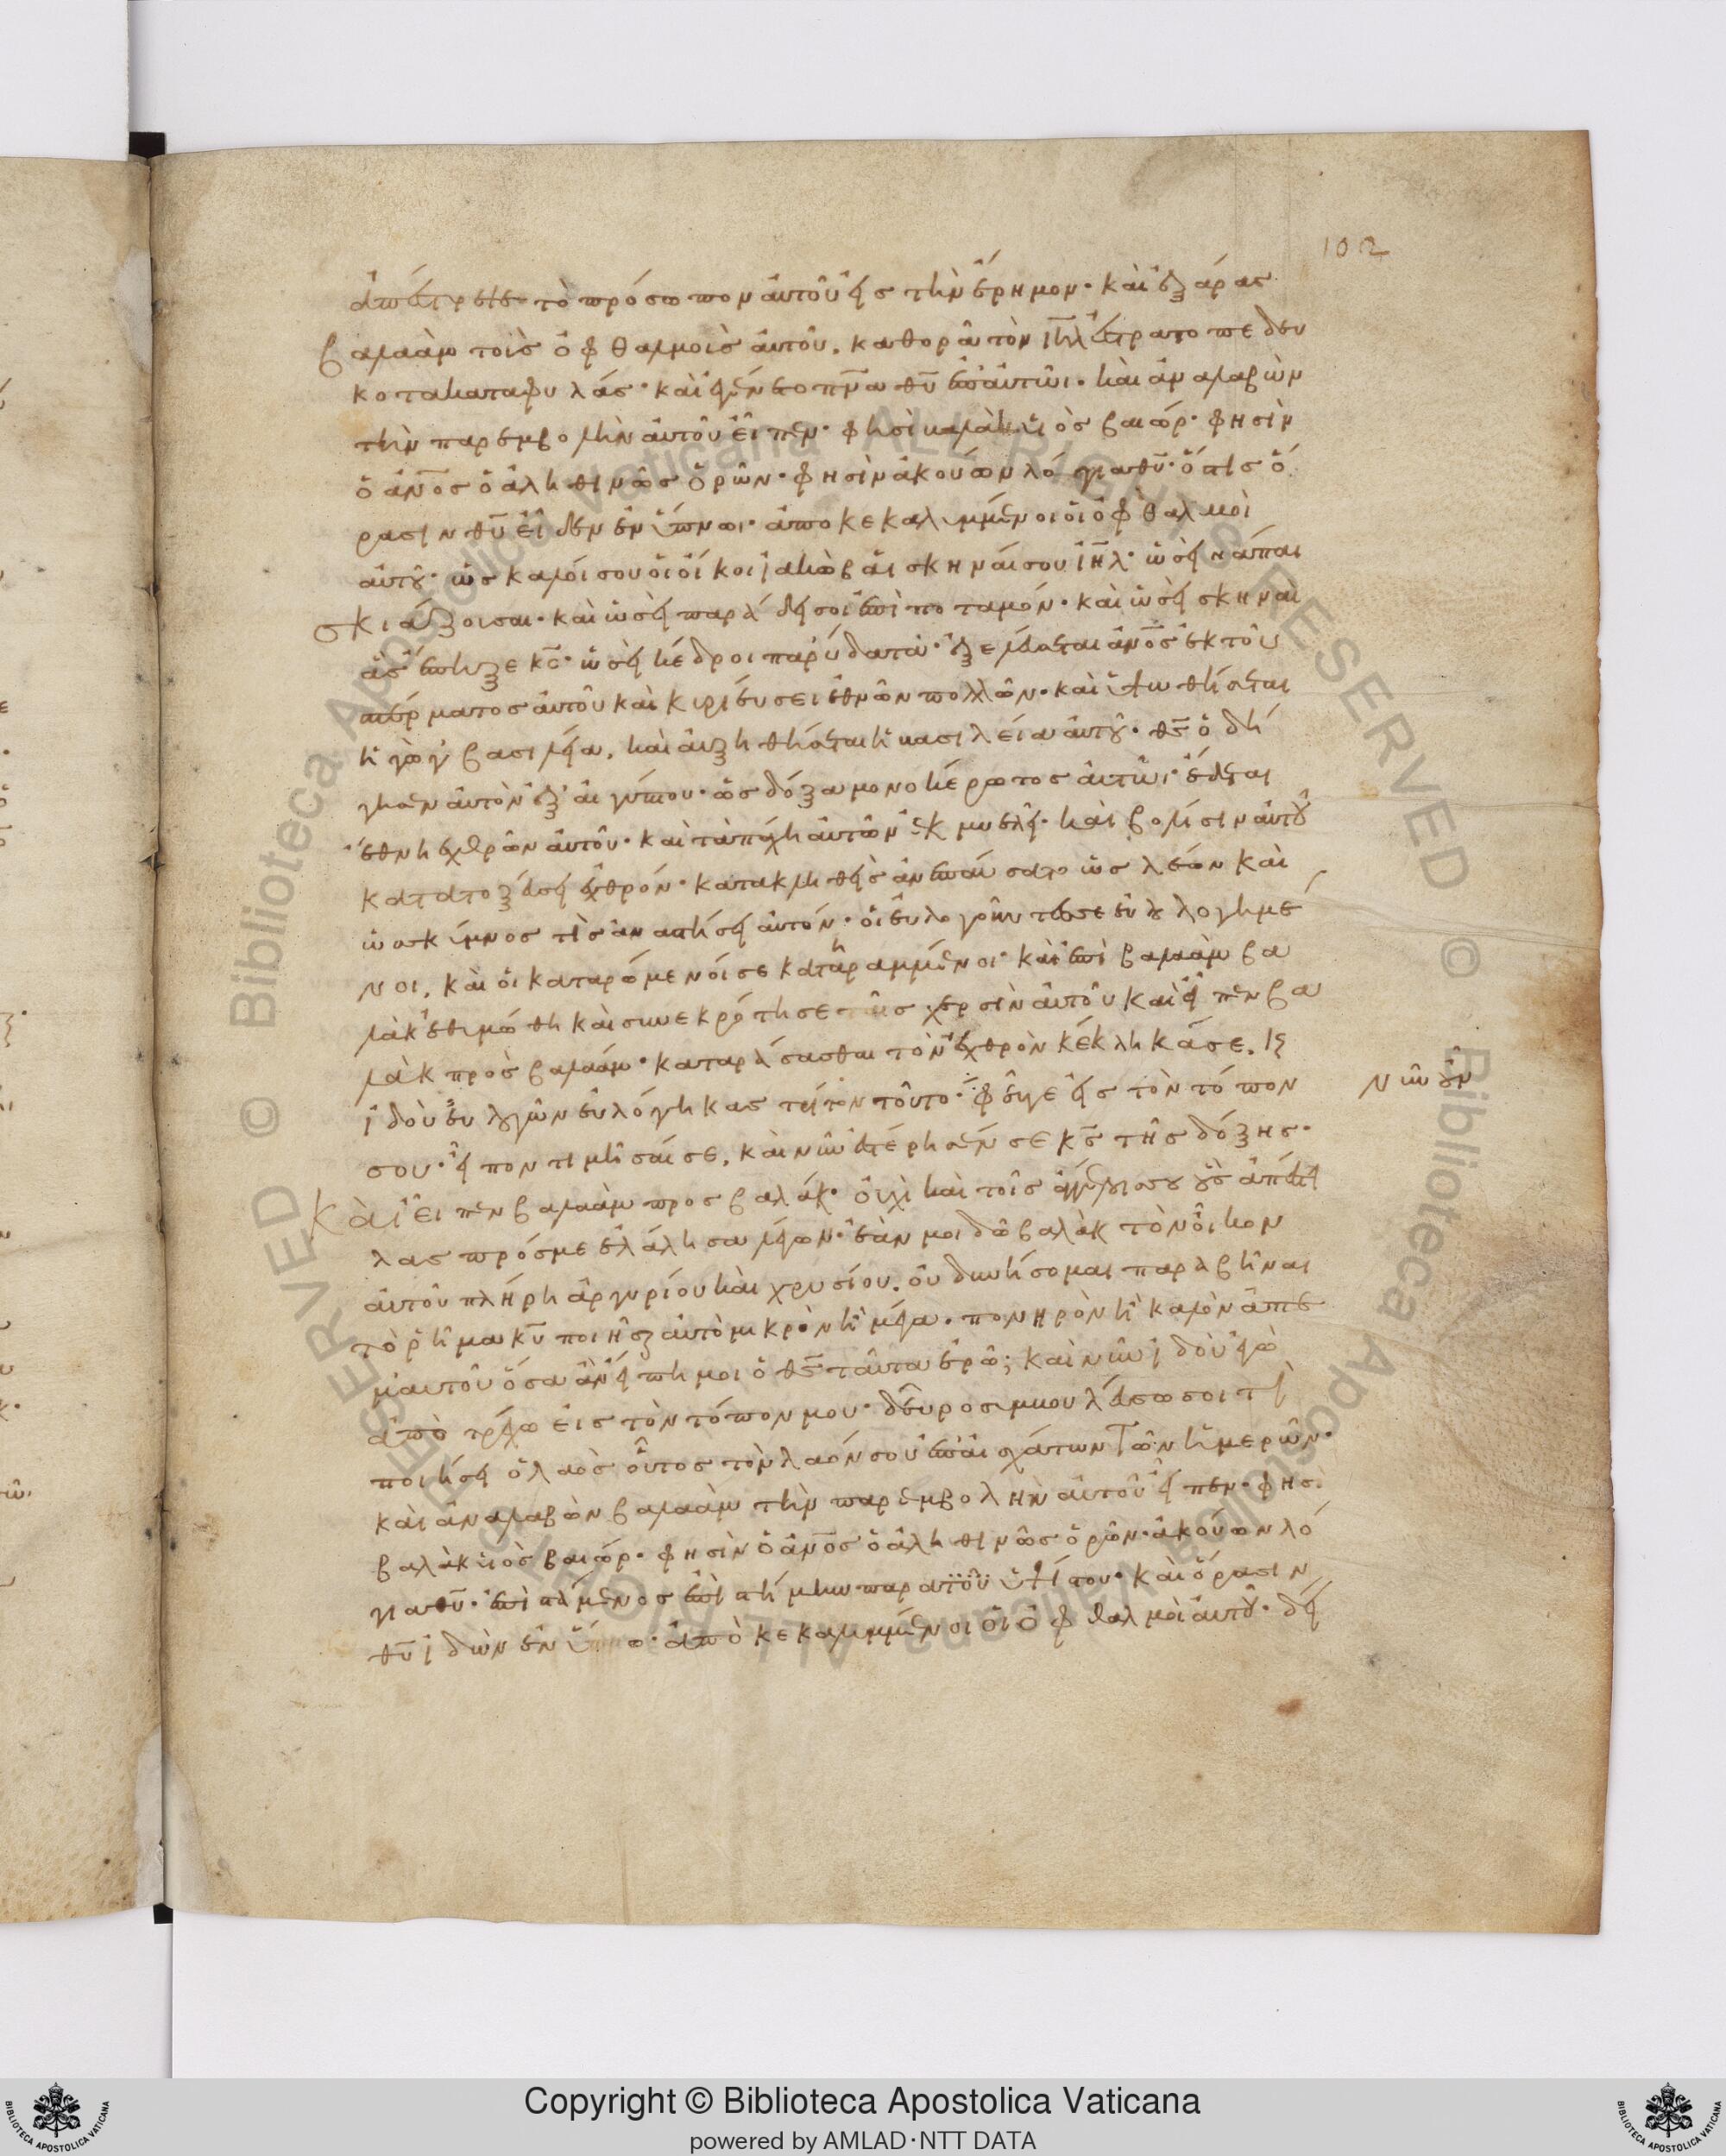 102
ἀπέστρεψε τὸ πρόσωπον αὐτοῦ εἰς τὴν ἔρημον· καὶ ἐξάρας
βαλαὰμ τοὶς ὀφθαλμοὶς αὐτοῦ, καθορᾶ τὸν ιηλ ἐστρατοπεδευ
κότα κατα φυλάς· καὶ ἐγένετο πνα θυ ἐπ αὐτῶι· καὶ ἀναλαβὼν
τὴν παρεμβολὴν αὐτοῦ εἶπεν· φησὶ βαλὰκ υἱὸς βαιώρ· φησὶν
ὁ ἀνος ὁ ἀληθινῶς ὁρῶν· φησὶν ἀκούων λόγια θυ· ὅστις ὅ
ρασιν θυ εἶδεν ἐν ὕπνωι· ἀποκεκαλυμμένοι οἱ ὀφθαλμοὶ
αὐτοῦ· ὡς καλοί σου οἱ οἶκοι ἰακὼβ αἱ σκηναί σου ιηλ· ὡσεὶ νάπαι
σκιάζουσαι· καὶ ὡσεὶ παράδεισοι ἐπὶ ποταμόν· καὶ ὡσεὶ σκηναι
ἃς ἔπηξε κς· ὡσεὶ κέδροι παρ ύδατα· ἐξελεύσεται ἀνος ἐκ τοῦ
σπέρματος αὐτοῦ καὶ κυριεύσει ἐθνῶν πολλῶν· καὶ ὑψωθήσεται
ἢ γὼγ βασιλεία, καὶ αὐξηθήσεται ἡ βασιλεία αὐτοῦ· θς ὁδή
γησεν αὐτὸν ἐξ αἰγύπτου· ὡς δόξα μονοκέρωτος αὐτῶι· ἔδεται
ἔθνη ἐχθρῶν αὐτοῦ· καὶ τὰ πάχη αὐτῶν ἐκμυελιεῖ· καὶ βολίσιν αὐτοῦ
κατατοξεύσει ἐχθρόν· κατακλιθεὶς ἀνεπαύσατο ὡς λέων καὶ
ὡς σκύμνος τὶς ἀναστήσει αὐτόν· οἱ εὐλογοῦντές σε εὐλόγημέ
νοι, καὶ οἱ καταρώμενοί σε κατηραμμένοι· καὶ ἐπὶ βαλαὰμ βα
λὰκ ἐθυμώθη καὶ συνεκρότησε ταῖς χερσὶν αὐτοῦ καὶ εἶπεν βα
λὰκ πρὸς βαλαάμ· καταράσασθαι τὸν ἐχθρὸν κέκληκά σε. κς
ἰδοὺ εὐλογῶν εὐλόγηκας τρίτον τοῦτο· φεῦγε εἰς τὸν τόπον
νῦν οὖν
σου· εἶπον τιμῆσαί σε, καὶ νῦν ἐστέρησέν σε κς τῆς δόξης·
Καὶ εἶπεν βαλαὰμ προς βαλάκ· οὐχὶ καὶ τοῖς ἀγγέλοις σου οὓς ἀπέστει
λας πρός με ἐλάλησα λέγων· ἐάν μοι δῶ βαλὰκ τὸν οἶκον
αὐτοῦ πλήρη ἀργυρίου καὶ χρυσίου, οὐ δυνήσομαι παραβῆναι
τὸ ρῆμα κυ ποιῆσαι αὐτὸ μικρὸν ἢ μέγα· πονηρὸν ἢ καλὸν ἀπ ἐ
μαυτοῦ ὅσα ἂν εἴπη μοι ὁ θς ταῦτα ἐρῶ; καὶ νῦν ἰδοὺ ἐγὼ
ἀποτρέχω εἰς τὸν τόπον μου· δεῦρο συμβουλεύσω σοι τί
ποιήσει ὁ λαὸς οὗτος τὸν λαόν σου ἐπ ἐσχάτων τῶν ἡμερῶν·
καὶ ἀναλαβὼν βαλαὰμ τὴν παρεμβολὴν αὐτοῦ εἶπεν· φησὶ
βαλὰκ υἱὸς βαιώρ· φησὶν ὁ ἀνος ὁ ἀληθινῶς ὁρῶν· ἀκούων λό
για θυ· ἐπιστάμενος ἐπιστήμην παρα τοῦ ὑψίστου· καὶ ὅρασιν
θυ ἰδὼν ἐν ὕπνω· ἀποκεκαλυμμένοι οἱ ὀφθαλμοὶ αὐτοῦ· δεί
Copyright © Biblioteca Apostolica Vaticana
powered by AMLAD·NTT DATA